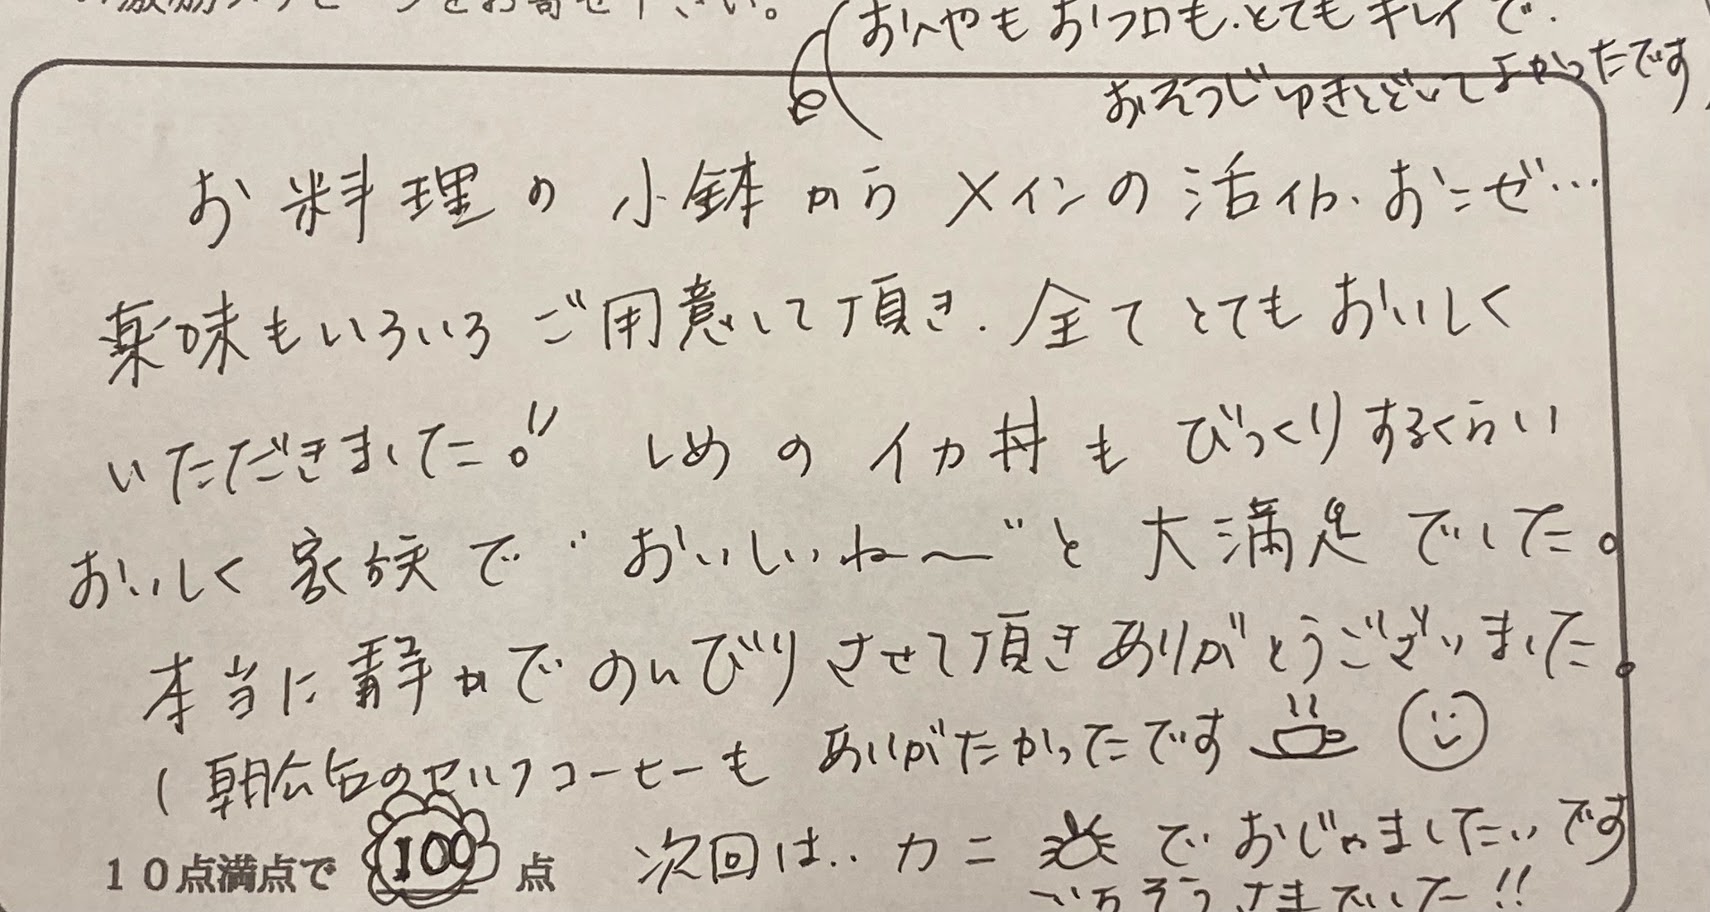 激励メッセージをお寄せ下さい。
おへやもおフロも、とてもキレイで、
おそうじゆきとどいてよかったです
お料理の小鉢からメインの活イカ、おこぜ…
薬味もいろいろご用意して頂き、全てとてもおいしく
いただきました!! しめのイカ丼もびっくりするくらい
おいしく家族で"おいしいね〜"と大満足でした。
本当に静かでのんびりさせて頂きありがとうございました。
(朝公台のセルフコーヒーもありがたかったです
10点満点で 100 点
次回は‥カニでおじゃましたいです
ごちそうさまでした!!